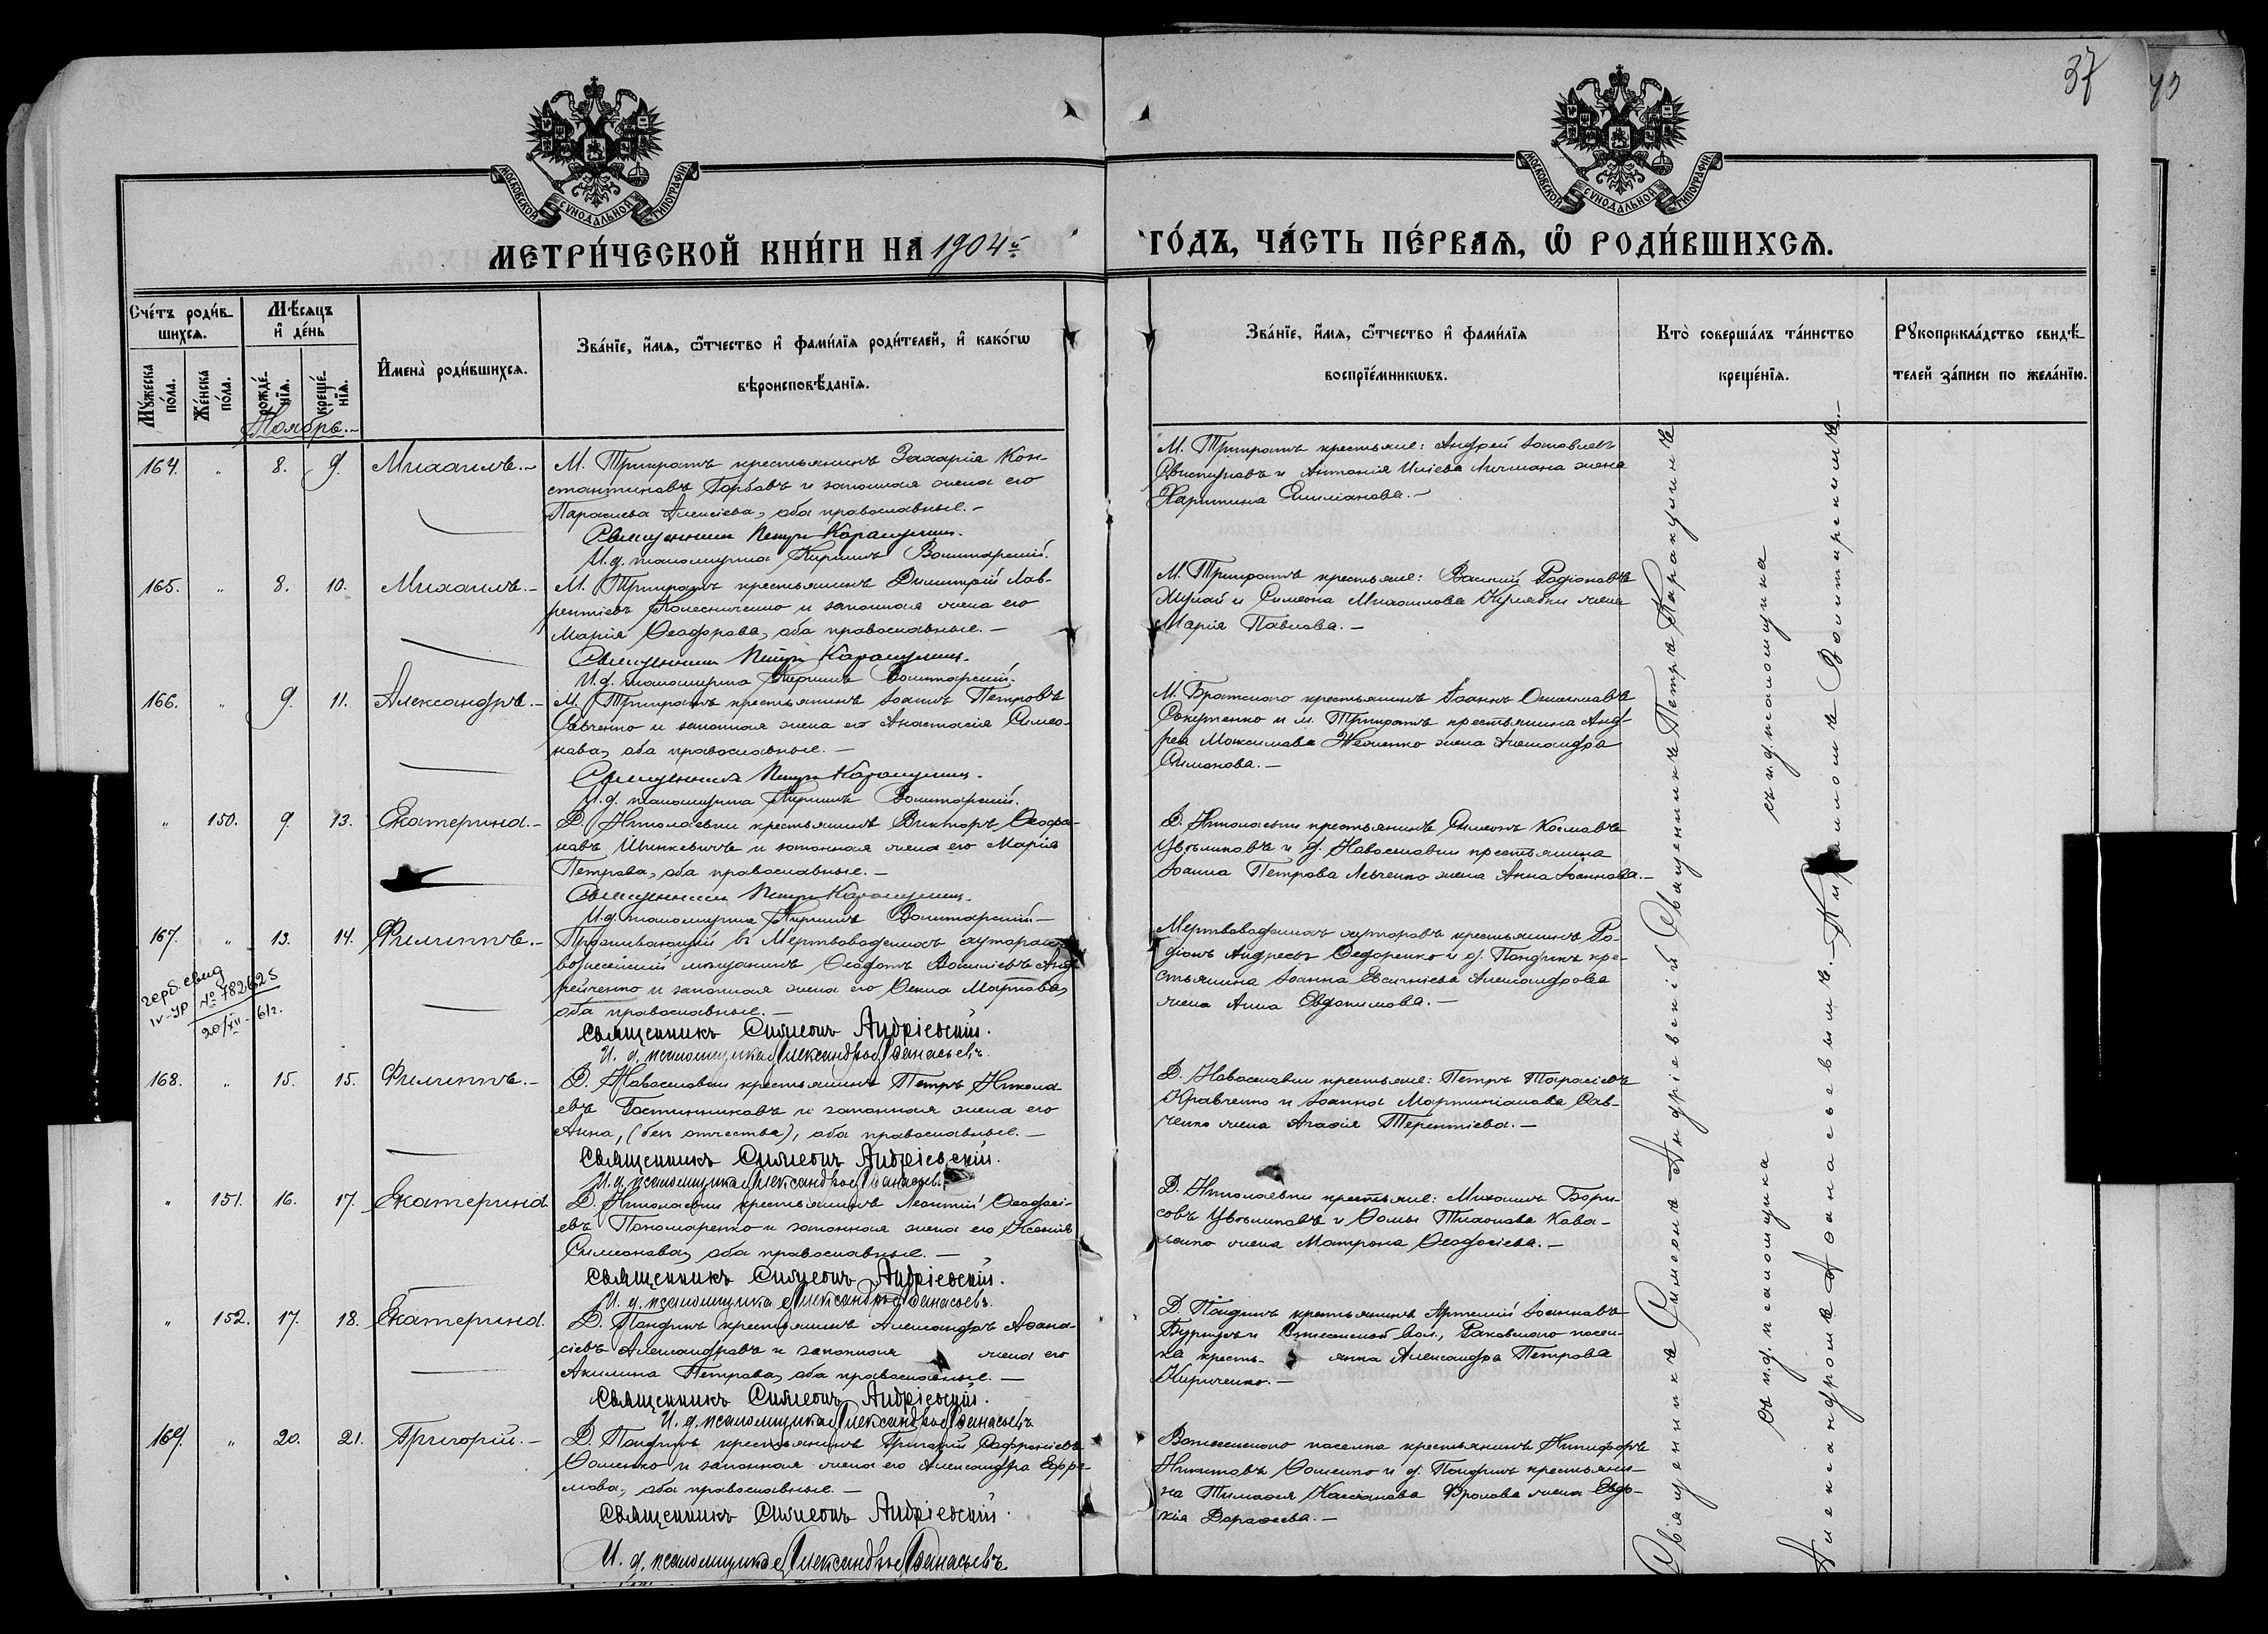 37
МОСКОВСКОЙ СѴНОДАЛЬНОЙ ТИПОГРАФІИ
МОСКОВСКОЙ СѴНОДАЛЬНОЙ ТИПОГРАФІИ
МЕТРИ́ЧЕСКОЙ КНИ́ГИ НА 1904й
ГО́ДЪ, ЧА́СТЬ ПЕ́РВАѦ, Ѿ РОДИ́ВШИХСѦ.
Сче́тъ роди́в-
шихсѧ.
Мѣ́сѧцъ
и҆ де́нь
Мꙋ́жеска
по́ла.
Же́нска
по́ла.
рожде́-
нїѧ.
креще́-
нїѧ.
И҆мена̀ роди́вшихсѧ.
Зва́нїе, и҆́мѧ, ѻ҆́тчество и҆ фами́лїѧ роди́телей, и҆ како́гѡ
вѣроисповѣ́данїѧ.
Зва́нїе, и҆́мѧ, ѻ҆́тчество и҆ фами́лїѧ
воспрїе́мникѡвъ.
Кто̀ соверша́лъ та́инство
креще́нїѧ.
Рꙋкоприкла́дство свидѣ́-
телей за́писи по жела́нїю.
Ноябрь.
164. " 8. 9. Михаилъ.
М. Трикратъ крестьянинъ Захарія Кон-
стантиновъ Горбовъ и законная жена его
Параскева Алексіева, оба православные.
Священникъ Петръ Каракулинъ.
И.д. псаломщика Кириллъ Волитарскій.
М. Трикратъ крестьяне: Андрей
и Антонія Иліева жена
Харитина Емиліанова.
165. " 8. 10. Михаилъ.
М. Трикратъ крестьянинъ Димитрій Лав-
рентіевъ Колесниченко и законная жена его
Марія Ѳеодорова, оба православные.
Священникъ Петръ Каракулинъ.
И.д. псаломщика Кириллъ Волитарскій.
М. Трикратъ крестьяне: Василій Родіоновъ
и Симеона Михаилова жена
Марія Павлова.
166. " 9. 11. Александръ.
М. Трикратъ крестьянинъ Іоаннъ Петровъ
Савченко и законная жена его Анастасія Симео-
нова, оба православные.
Священникъ Петръ Каракулинъ.
И.д. псаломщика Кириллъ Волитарскій.
М. Братского крестьянинъ Іоаннъ
и м. Трикратъ крестьянина Анд-
рея Максимова жена Александра
Симонова.
" 150. 9. 13. Екатерина.
Д. Николаевки крестьянинъ Викторъ Ѳеофа-
новъ Шинкевичъ и законная жена его Марія
Петрова, оба православные.
Священникъ Петръ Каракулинъ.
И.д. псаломщика Кириллъ Волитарскій
Д. Николаевки крестьянинъ Симеонъ Космовъ
Цвѣликовъ и д. Новоселовки крестьянина
Іоанна Петрова Левченко жена Анна Іоаннова.
167. " 13. 14. Филиппъ.
герб. свид
IV-УР № 782625
20/XII-61г.
Проживающій въ Мертвоводскихъ хуторахъ
вознесенскій мѣщанинъ Ѳеодотъ Василіевъ Анд-
рейченко и законная жена его Ѳекла Маркова,
оба православные.
Священникъ Симеонъ Андріевскій.
И. д. псаломщика Александръ Аѳанасьевъ.
Мертвоводскихъ хуторовъ крестьянинъ Ро-
діонъ Андреевъ Ѳедоренко и д. Пондикъ кре-
стьянина Іоанна Евсигніева Александрова
жена Анна Евдокимова.
168. " 15. 15. Филиппъ.
Д. Новоселовки крестьянинъ Петръ Никола-
евъ Гостинниковъ и законная жена его
Анна, (безъ отчества), оба православные.
Священникъ Симеонъ Андріевскій.
И. д. псаломщика Александръ Аѳанасьевъ
Д. Новоселовки крестьяне: Петръ Тарасіевъ
Кравченко и Іоанна Мартиніанова Сав-
ченко жена Агафія Терентіева.
" 151. 16. 17. Екатерина
Д. Николаевки крестьянинъ Леонтій Ѳеодосі-
евъ Пономаренко и законная жена его Ксенія
Симеонова, оба православные.
Священникъ Симеонъ Андріевскій.
И. д. псаломщика Александръ Аѳанасьевъ.
Д. Николаевки крестьяне: Михаилъ Бори-
совъ Цвѣликовъ и Ѳомы Тихонова Кова-
ленко жена Матрона Ѳеодосіева.
" 152. 17. 18. Екатерина.
Д. Пондикъ крестьянинъ Александръ Аѳана-
сіевъ Александровъ и законная жена его
Акилина Петрова, оба православные.
Священникъ Симеонъ Андріевскій.
И. д. псаломщика Александръ Аѳанасьевъ
Д. Пондикъ крестьянинъ Артемій Іоанновъ
и вол., Раковского посел-
ка кресть- янка Александра Петрова
Кириченко.
169. " 20. 21. Григорій.
Д. Пондикъ крестьянинъ Григорій Софроніевъ
Ѳоменко и законная жена его Александра Ефре-
мова, оба православные.
Священникъ Симеонъ Андріевскій.
И. д. псаломщика Александръ Аѳанасьевъ.
Вознесенского поселка крестьянинъ Никифоръ
Никитовъ Ѳоменко и д. Пондикъ крестьяни-
на Тимоѳея Кассіанова Фролова жена Евдо-
кія Дороѳеева.
Священникъ Петръ Каракулинъ
съ и.д. псаломщика
Кирилломъ Волитарскимъ.
Священникъ Симеонъ Андріевскій
съ и.д. псаломщика
Александромъ Аѳанасьевымъ.